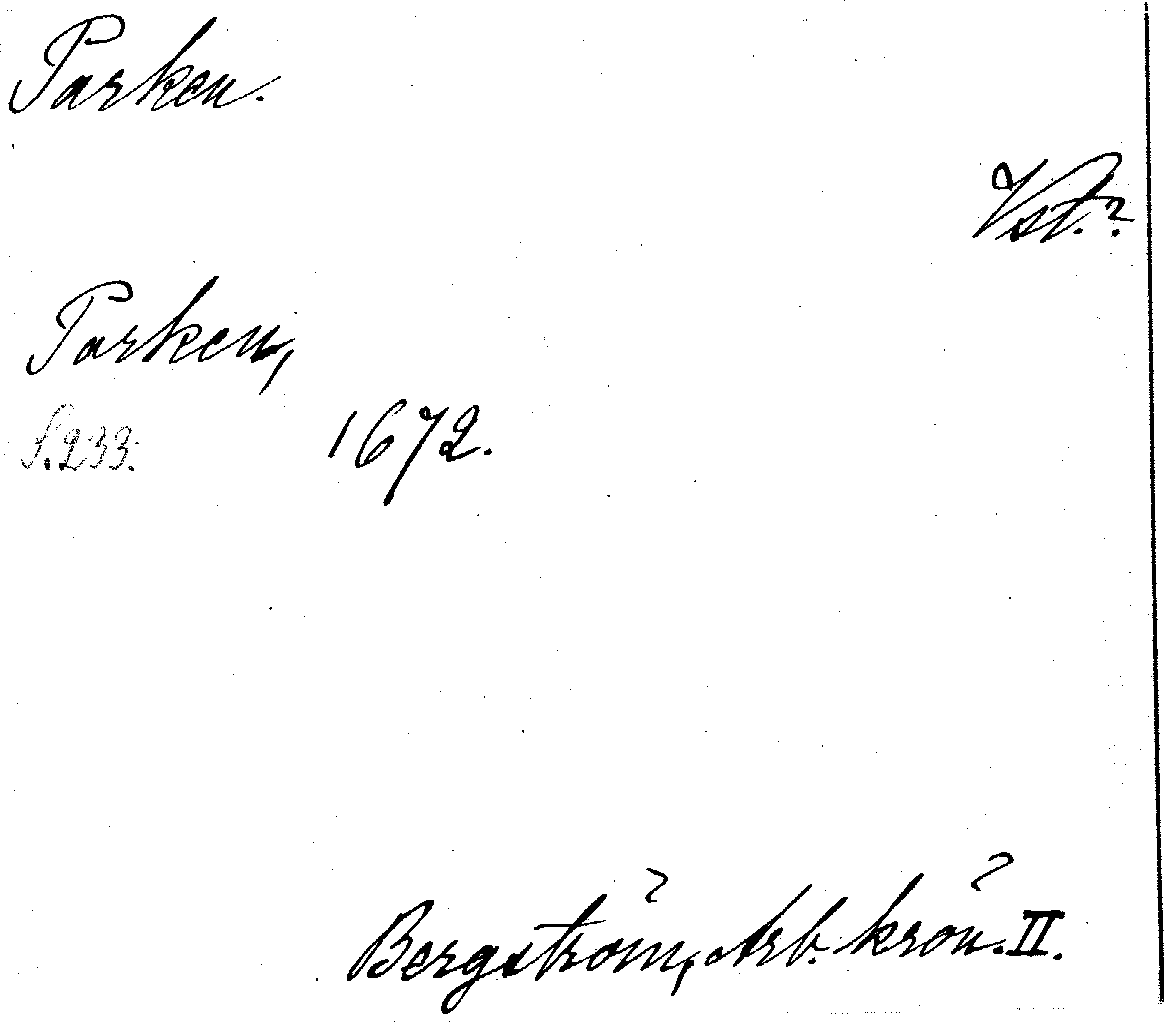 Parken.
Vst.?
Parken,
S. 233. 1672.
Bergström, Arb. krön. II.